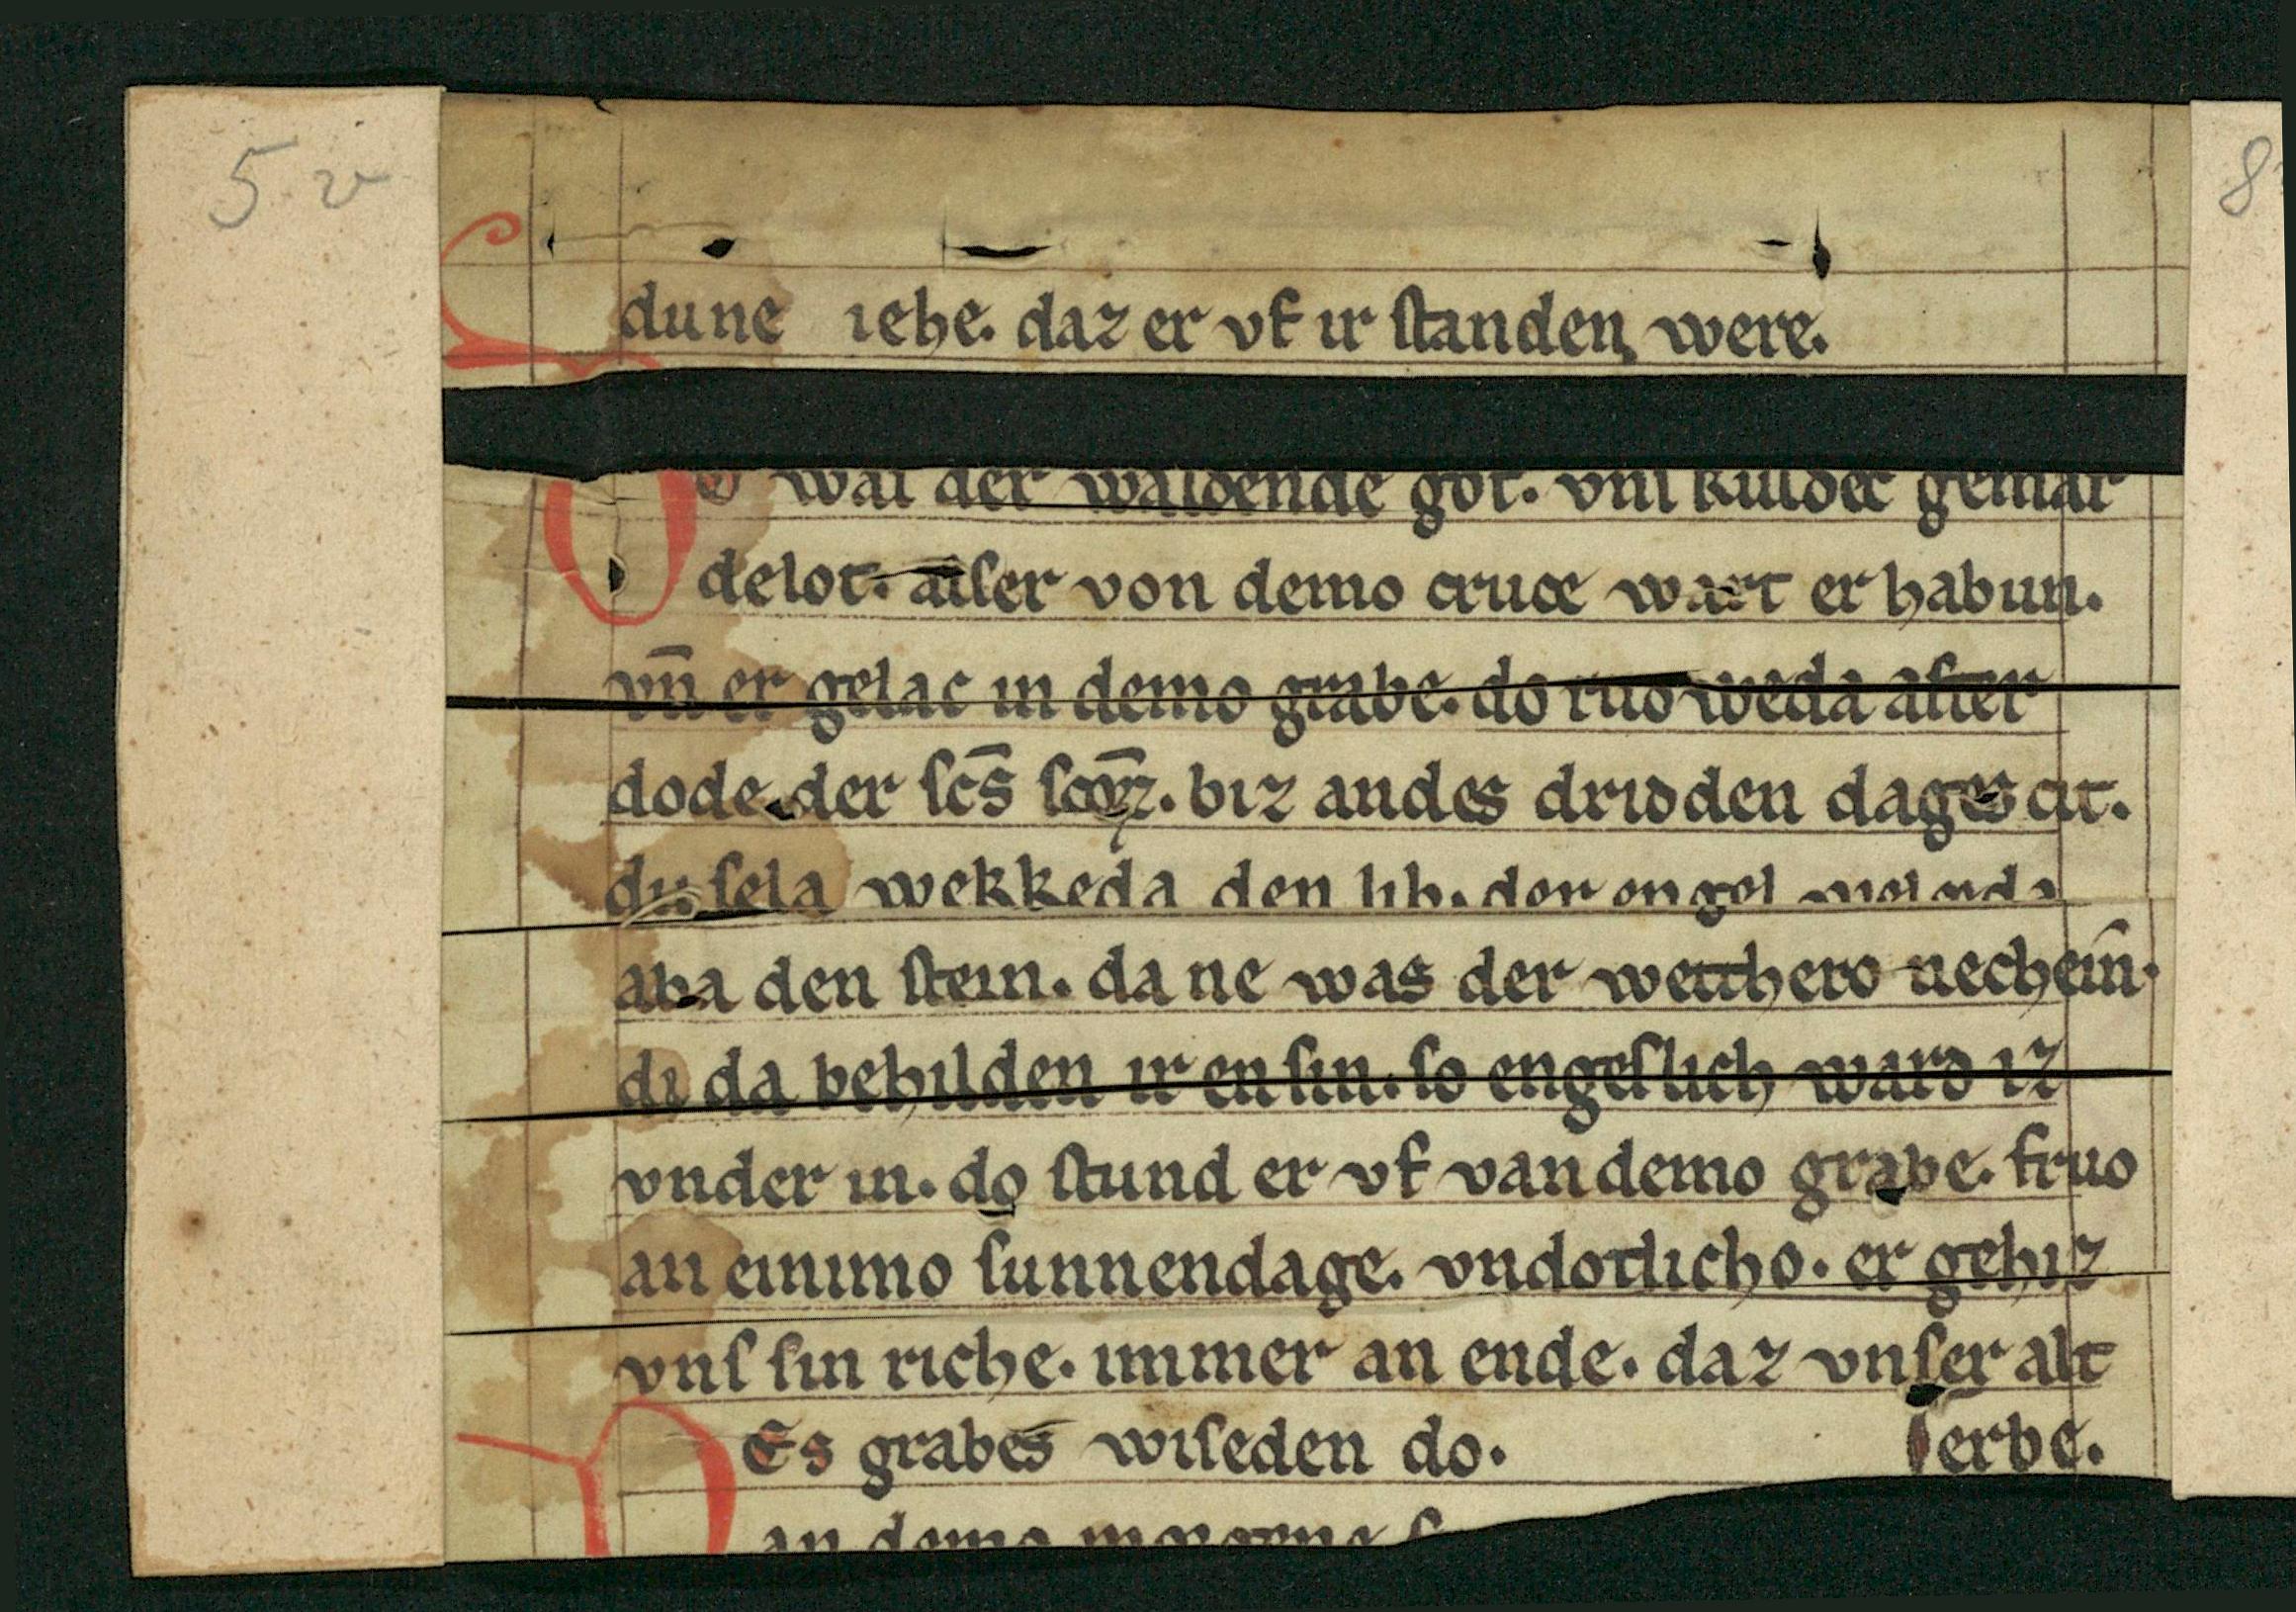 5 v
8
dune iehe. daz er vf ir ſtanden were.
Do waſ der waldende got. vnſ kundet gemar
delot. alſer von demo cruce wart er habun.
vn̄ er gelac in demo grabe. do ruoweda after
dode. der ſc̄s ſcōꝝ. biz andes dridden dages cit.
du ſela wekkeda den lib. der engel welede
aba den ſtein. da ne was der wetthero nechein̄.
di da behilden ir en ſin. ſo engeſlich ward iz
vnder in. do ſtund er vf van demo grabe. fruo
an einimo ſunnendage. vndotlicho. er gehiz
vnſ ſin riche. immer an ende. daz vnſer alt
DEs grabes wiſeden do. ſerbe.
an demo morgene